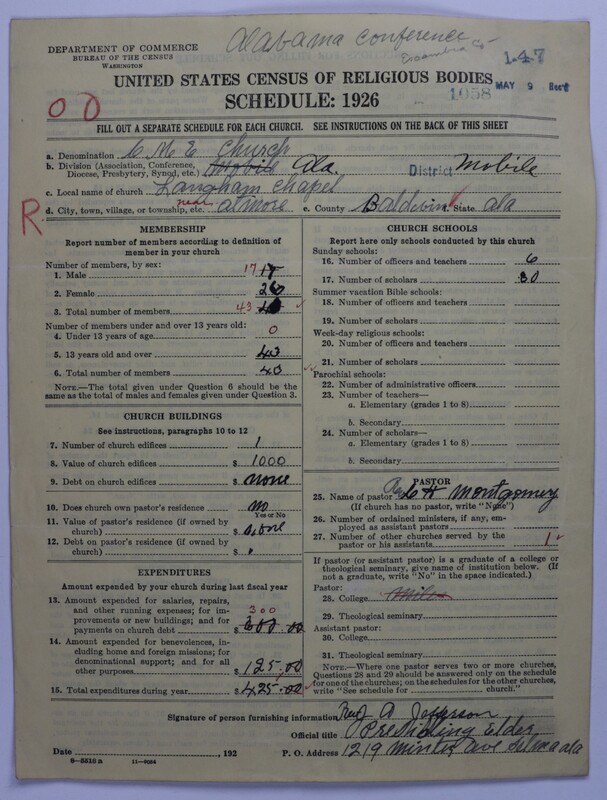 Alabama Conference
Escambia Co
DEPARTMENT OF COMMERCE
BUREAU OF THE CENSUS
WASHINGTON
147
1058
MAY 9
UNITED STATES CENSUS OF RELIGIOUS BODIES
SCHEDULE: 1926
FILL OUT A SEPARATE SCHEDULE FOR EACH CHURCH. SEE INSTRUCTIONS ON THE BACK OF THIS SHEET
a. Denomination C M E Church
b. Division (Association, Conference, Diocese, Presbytery, Synod, etc.) Mobile Ala. District Mobile
c. Local name of church Langham Chapel
R
d. City, town, village, or township, etc. near atmore e. County Baldwin State ala
MEMBERSHIP
Report number of members according to definition of
member in your church
Number of members, by sex:
1. Male 17 17
2. Female 26
3. Total number of members 43
Number of members under and over 13 years old:
4. Under 13 years of age 0
5. 13 years old and over 43
6. Total number of members 43
NOTE.—The total given under Question 6 should be
the same as the total of males and females given under Question 3.
CHURCH BUILDINGS
See instructions, paragraphs 10 to 12
7. Number of church edifices 1
8. Value of church edifices $ 1000
9. Debt on church edifices $ none
10. Does church own pastor's residence no
Yes or No
11. Value of pastor's residence (if owned by
church) $ none
12. Debt on pastor's residence (if owned by
church) $
EXPENDITURES
Amount expended by your church during last fiscal year
13. Amount expended for salaries, repairs,
and other running expenses; for im-
provements or new buildings; and for
payments on church debt $ 300 300 00
14. Amount expended for benevolences, in-
cluding home and foreign missions; for
denominational support; and for all
other purposes $ 125.00
15. Total expenditures during year $ 425.00
CHURCH SCHOOLS
Report here only schools conducted by this church
Sunday schools:
16. Number of officers and teachers 6
17. Number of scholars 30
Summer vacation Bible schools:
18. Number of officers and teachers
19. Number of scholars
Week-day religious schools:
20. Number of officers and teachers
21. Number of scholars
Parochial schools:
22. Number of administrative officers
23. Number of teachers—
a. Elementary (grades 1 to 8)
b. Secondary
24. Number of scholars—
a. Elementary (grades 1 to 8)
b. Secondary
PASTOR
25. Name of pastor Montgomery
(If church has no pastor, write "None")
26. Number of ordained ministers, if any, em-
ployed as assistant pastors
27. Number of other churches served by the
pastor or his assistants. 1
If pastor (or assistant pastor) is a graduate of a college or
theological seminary, give name of institution below. (If
not a graduate, write "No" in the space indicated.)
Pastor:
28. College
29. Theological seminary
Assistant pastor:
30. College
31. Theological seminary
NOTE.—Where one pastor serves two or more churches,
Questions 28 and 29 should be answered only on the schedule
for one of the churches; on the schedules for the other churches,
write "See schedule for church."
Signature of person furnishing information Rev A Jefferson
Official title Presiding Elder
Date , 192 P. O. Address 1219 Minter ave Selma ala
8—5518 a 11—9084